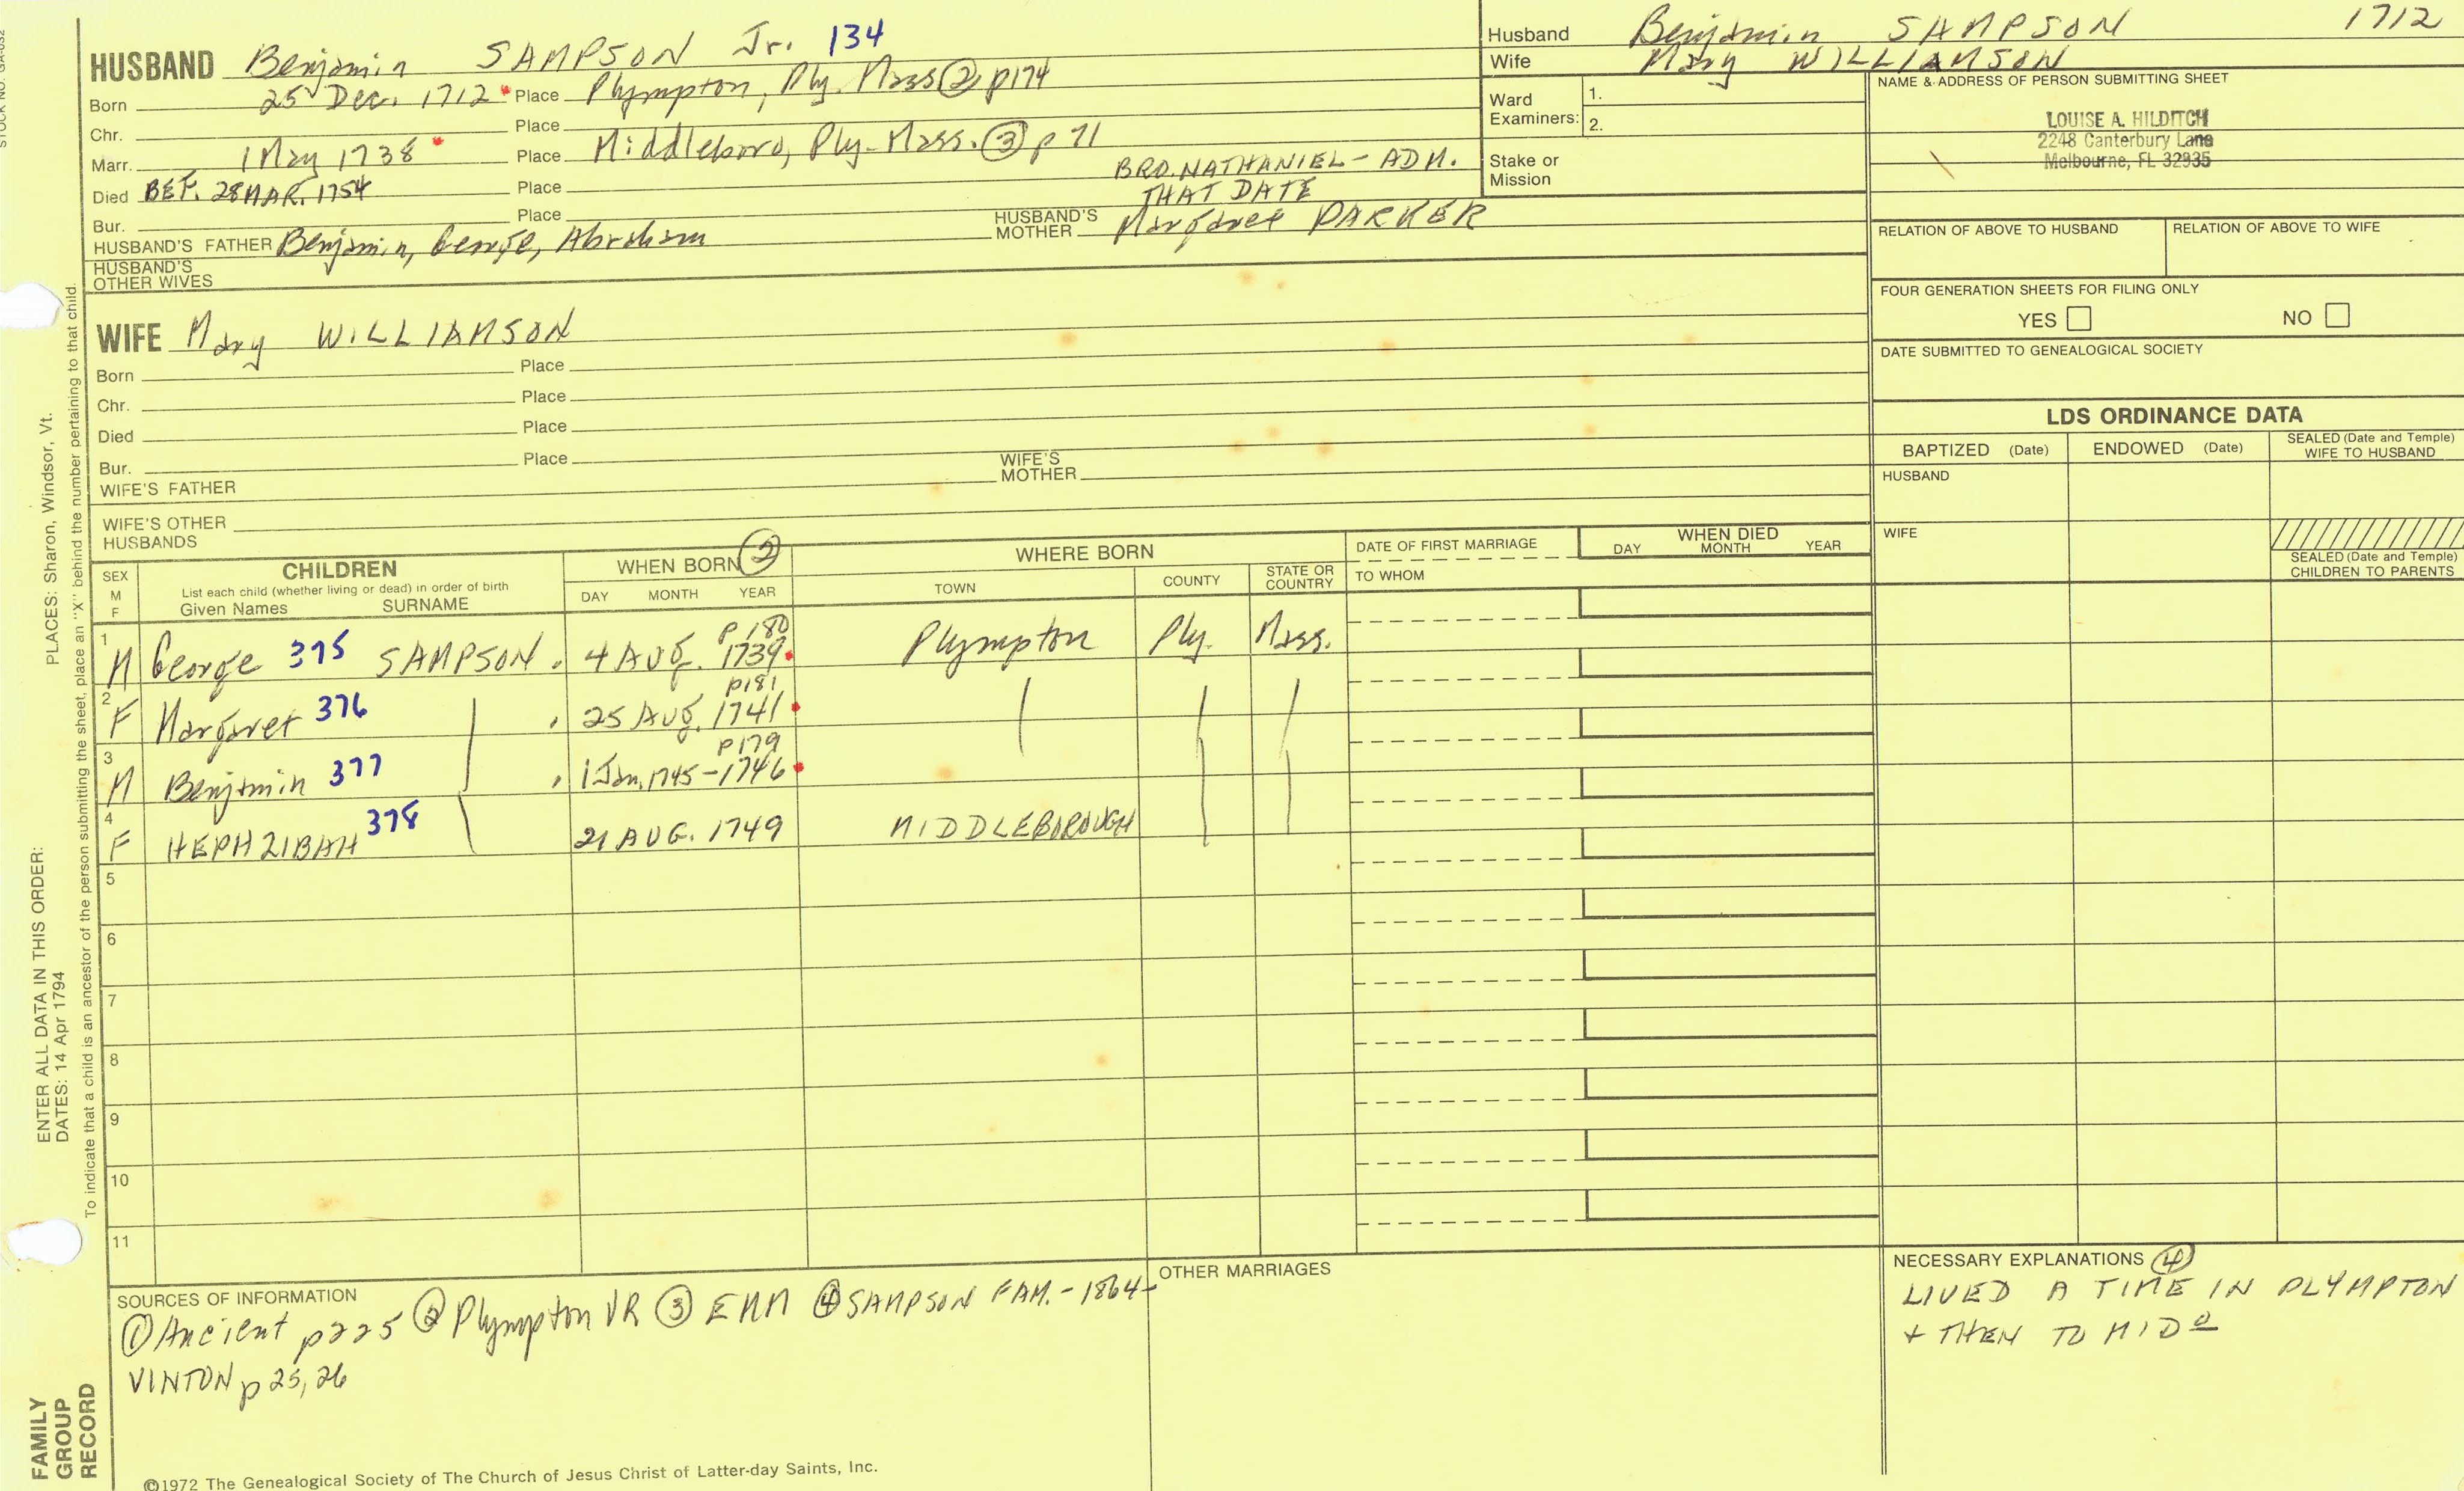 HUSBAND Benjamin SAMPSON Jr. 134
Born 25 Dec. 1712 Place Plympton, Ply. Mass ② p174
Chr. Place
Marr. 1 May 1738 Place Middleboro, Ply. Mass. ③ p 71
Died BEF. 28 MAR. 1754 Place BRO. NATHANIEL - ADM.
THAT DATE
Bur. Place
HUSBAND'S FATHER Benjamin, George, Abraham HUSBAND'S MOTHER Margaret PARKER
HUSBAND'S OTHER WIVES
WIFE Mary WILLIAMSON
Born Place
Chr. Place
Died Place
Bur. Place
WIFE'S FATHER WIFE'S MOTHER
WIFE'S OTHER HUSBANDS
Husband Benjamin SAMPSON 1712
Wife Mary WILLIAMSON
Ward Examiners: 1.
2.
Stake or Mission
NAME & ADDRESS OF PERSON SUBMITTING SHEET
LOUISE A. HILDITCH
2248 Canterbury Lane
Melbourne, FL 32935
RELATION OF ABOVE TO HUSBAND RELATION OF ABOVE TO WIFE
FOUR GENERATION SHEETS FOR FILING ONLY
YES NO
DATE SUBMITTED TO GENEALOGICAL SOCIETY
LDS ORDINANCE DATA
BAPTIZED (Date) ENDOWED (Date) SEALED (Date and Temple) WIFE TO HUSBAND
HUSBAND
WIFE
SEALED (Date and Temple) CHILDREN TO PARENTS
SEX M F CHILDREN WHEN BORN ② WHERE BORN DATE OF FIRST MARRIAGE WHEN DIED
List each child (whether living or dead) in order of birth
Given Names SURNAME DAY MONTH YEAR TOWN COUNTY STATE OR COUNTRY TO WHOM DAY MONTH YEAR
p 180
1 M George 375 SAMPSON 4 AUG. 1739 Plympton Ply. Mass.
p181
2 F Margaret 376 25 AUG. 1741
p179
3 M Benjamin 377 1 Jan. 1745-1746
4 F HEPHZIBAH 378 21 AUG. 1749 MIDDLEBOROUGH
5
6
7
8
9
10
11
SOURCES OF INFORMATION
① Ancient p225 ② Plympton VR ③ EMM ④ SAMPSON FAM. - 1864-
VINTON p 25, 26
OTHER MARRIAGES
NECESSARY EXPLANATIONS ④
LIVED A TIME IN PLYMPTON
+ THEN TO MIDO
©1972 The Genealogical Society of The Church of Jesus Christ of Latter-day Saints, Inc.
STOCK NO. GA-032
PLACES: Sharon, Windsor, Vt.
ENTER ALL DATA IN THIS ORDER:
DATES: 14 Apr 1794
To indicate that a child is an ancestor of the person submitting the sheet, place an "X" behind the number pertaining to that child.
FAMILY
GROUP
RECORD